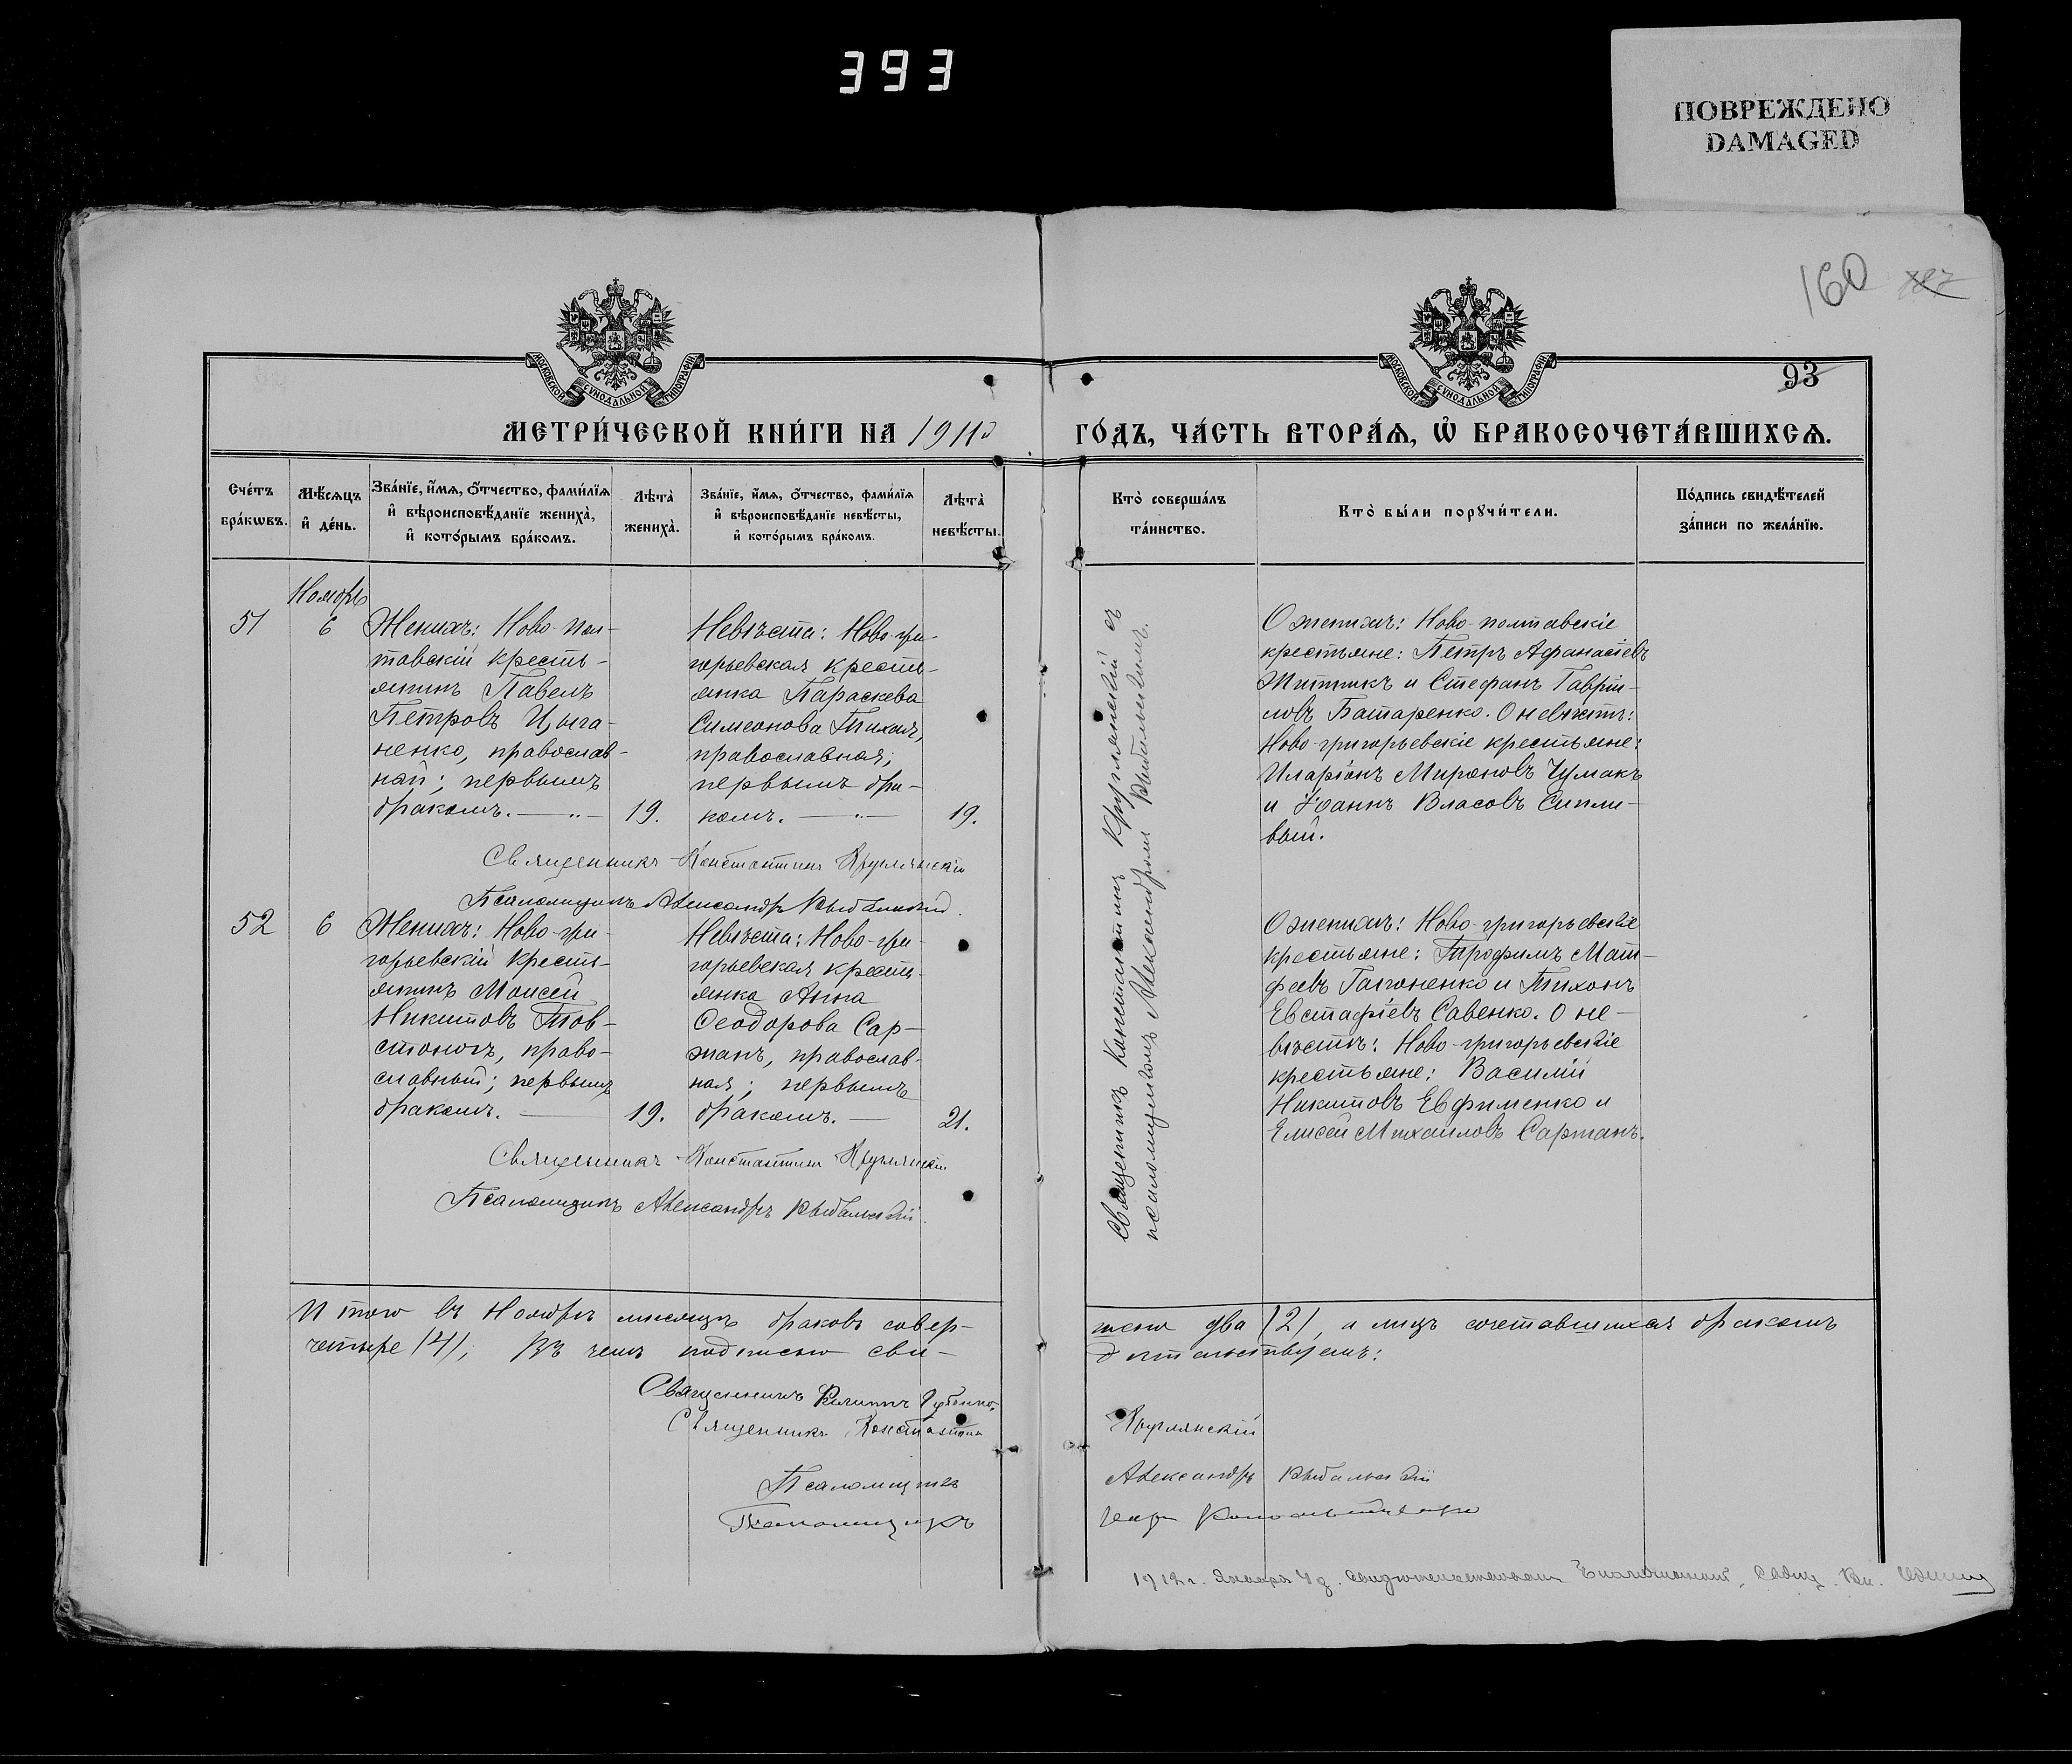 393
ПОВРЕЖДЕНО
DAMAGED
160
93
МОСКОВСКОЙ СѴНОДАЛЬНОЙ ТИПОГРАФІИ
МОСКОВСКОЙ СѴНОДАЛЬНОЙ ТИПОГРАФІИ
МЕТРИ́ЧЕСКОЙ КНИ́ГИ НА 1911
ГО́ДЪ, ЧА́СТЬ ВТОРА́Ѧ, Ѡ҆ БРАКОСОЧЕТА́ВШИХСѦ.
Сче́тъ
бра́кѡвъ.
Мѣ́сѧцъ
и҆ де́нь.
Зва́нїе, и҆́мѧ, ѻ҆́тчество, фами́лїѧ
и҆ вѣроисповѣ́данїе жениха̀,
и҆ кото́рымъ бра́комъ.
Лѣта̀
жениха̀.
Зва́нїе, и҆́мѧ, ѻ҆́тчество, фами́лїѧ
и҆ вѣроисповѣ́данїе невѣ́сты,
и҆ кото́рымъ бра́комъ.
Лѣта̀
невѣ́сты.
Кто̀ соверша́лъ
та́инство.
Кто̀ бы́ли порꙋчи́тели.
По́дпись свидѣ́телей
за́писи по жела́нїю.
Ноябрь
51
6
Женихъ: Ново-пол-
тавскій кресть-
янинъ Павелъ
Петровъ Цыга-
ненко, православ-
ный; первымъ
бракомъ. — „ —
19.
Невѣста: Ново-гри-
горьевская кресть-
янка Параскева
Симеонова Тихая,
православная;
первымъ бра-
комъ. — „ —
19.
Священникъ Константинъ Круглянскій съ
псаломщикомъ Александромъ Рыбальскимъ.
О женихѣ: Ново-полтавскіе
крестьяне: Петръ Афанасіевъ
Житникъ и Стефанъ Гаврiи-
ловъ Батаренко. О невѣстѣ:
Ново-григорьевскіе крестьяне:
Иларіонъ Мироновъ Чумакъ
и Іоаннъ Власовъ Сипли-
вый.
Священникъ Константинъ Круглянскій
Псаломщикъ Александръ Рыбальскій.
52
6
Женихъ: Ново-гри-
горьевскій кресть-
янинъ Моисей
Никитовъ Тов-
стоногъ, право-
славный; первымъ
бракомъ. —
19.
Невѣста: Ново-гри-
горьевская кресть-
янка Анна
Ѳеодорова Сар-
жанъ, православ-
ная; первымъ
бракомъ. —
21.
О женихѣ: Ново-григорьевскіе
крестьяне: Трофимъ Мат-
ѳеевъ Гапоненко и Тихонъ
Евстафіевъ Савенко. О не-
вѣстѣ: Ново-григорьевскіе
крестьяне: Василій
Никитовъ Евфименко и
Елисей Михаиловъ Саржанъ.
Священникъ Константинъ Круглянскій.
Псаломщикъ Александръ Рыбальскій.
Итого въ Ноябрѣ мѣсяцѣ браковъ совер-
шено два (2), а лицъ сочетавшихся бракомъ
четыре (4), въ чемъ подписью сви-
дѣтельствуемъ:
Священникъ Филиппъ
Священникъ Константинъ Круглянскій
Псаломщикъ Александръ Рыбальскій
Псаломщикъ
1912 г. Января